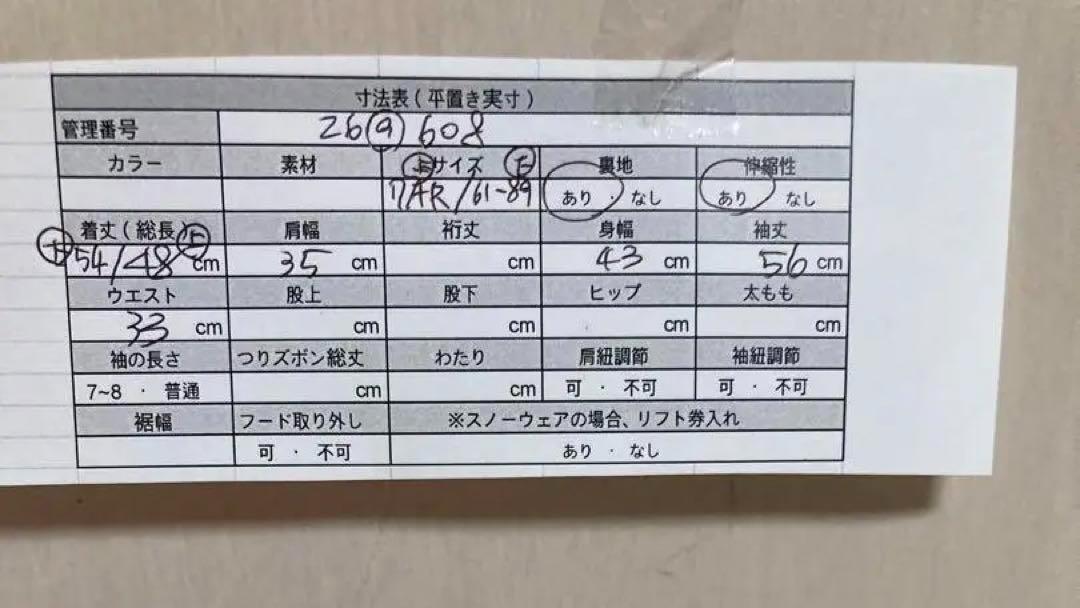 寸法表(平置き実寸)
管理番号 26ⓐ608
カラー 素材 ㊤サイズ㊦ 裏地 伸縮性
7AR/61-89 あり・なし あり・なし
着丈(総長) 肩幅 裄丈 身幅 袖丈
㊤54/㊦48cm 35cm cm 43cm 56cm
ウエスト 股上 股下 ヒップ 太もも
33cm cm cm cm cm
袖の長さ つりズボン総丈 わたり 肩紐調節 袖紐調節
7~8・普通 cm cm 可・不可 可・不可
裾幅 フード取り外し ※スノーウェアの場合、リフト券入れ
可・不可 あり・なし